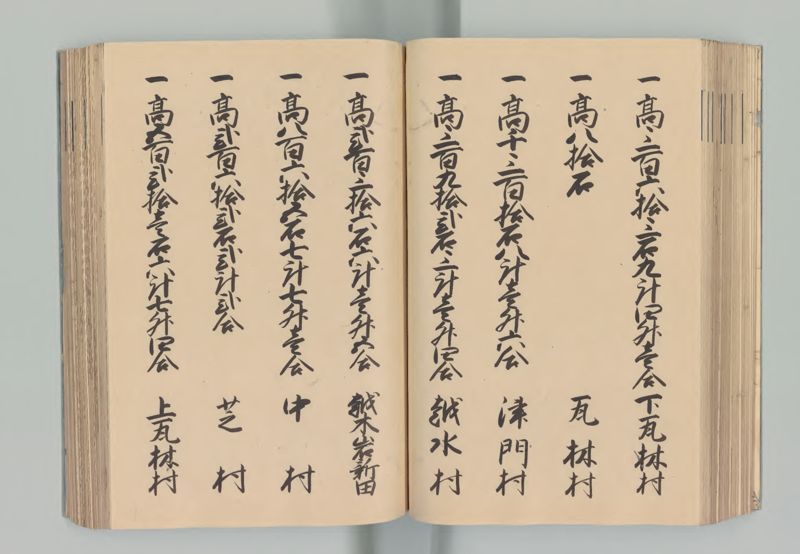 一高三百六拾三石九斗四升壱合 下瓦林村
一高八拾石 瓦林村
一高千三百拾石八斗壱升六合 津門村
一高三百九拾弐石三斗壱升四合 越水村
一高弐百三拾六石六斗壱升五合 越水岩新田
一高八百六拾五石七斗七升壱合 中村
一高弐百六拾弐石弐斗弐合 芝村
一高五百弐拾壱石六斗七升四合 上瓦林村